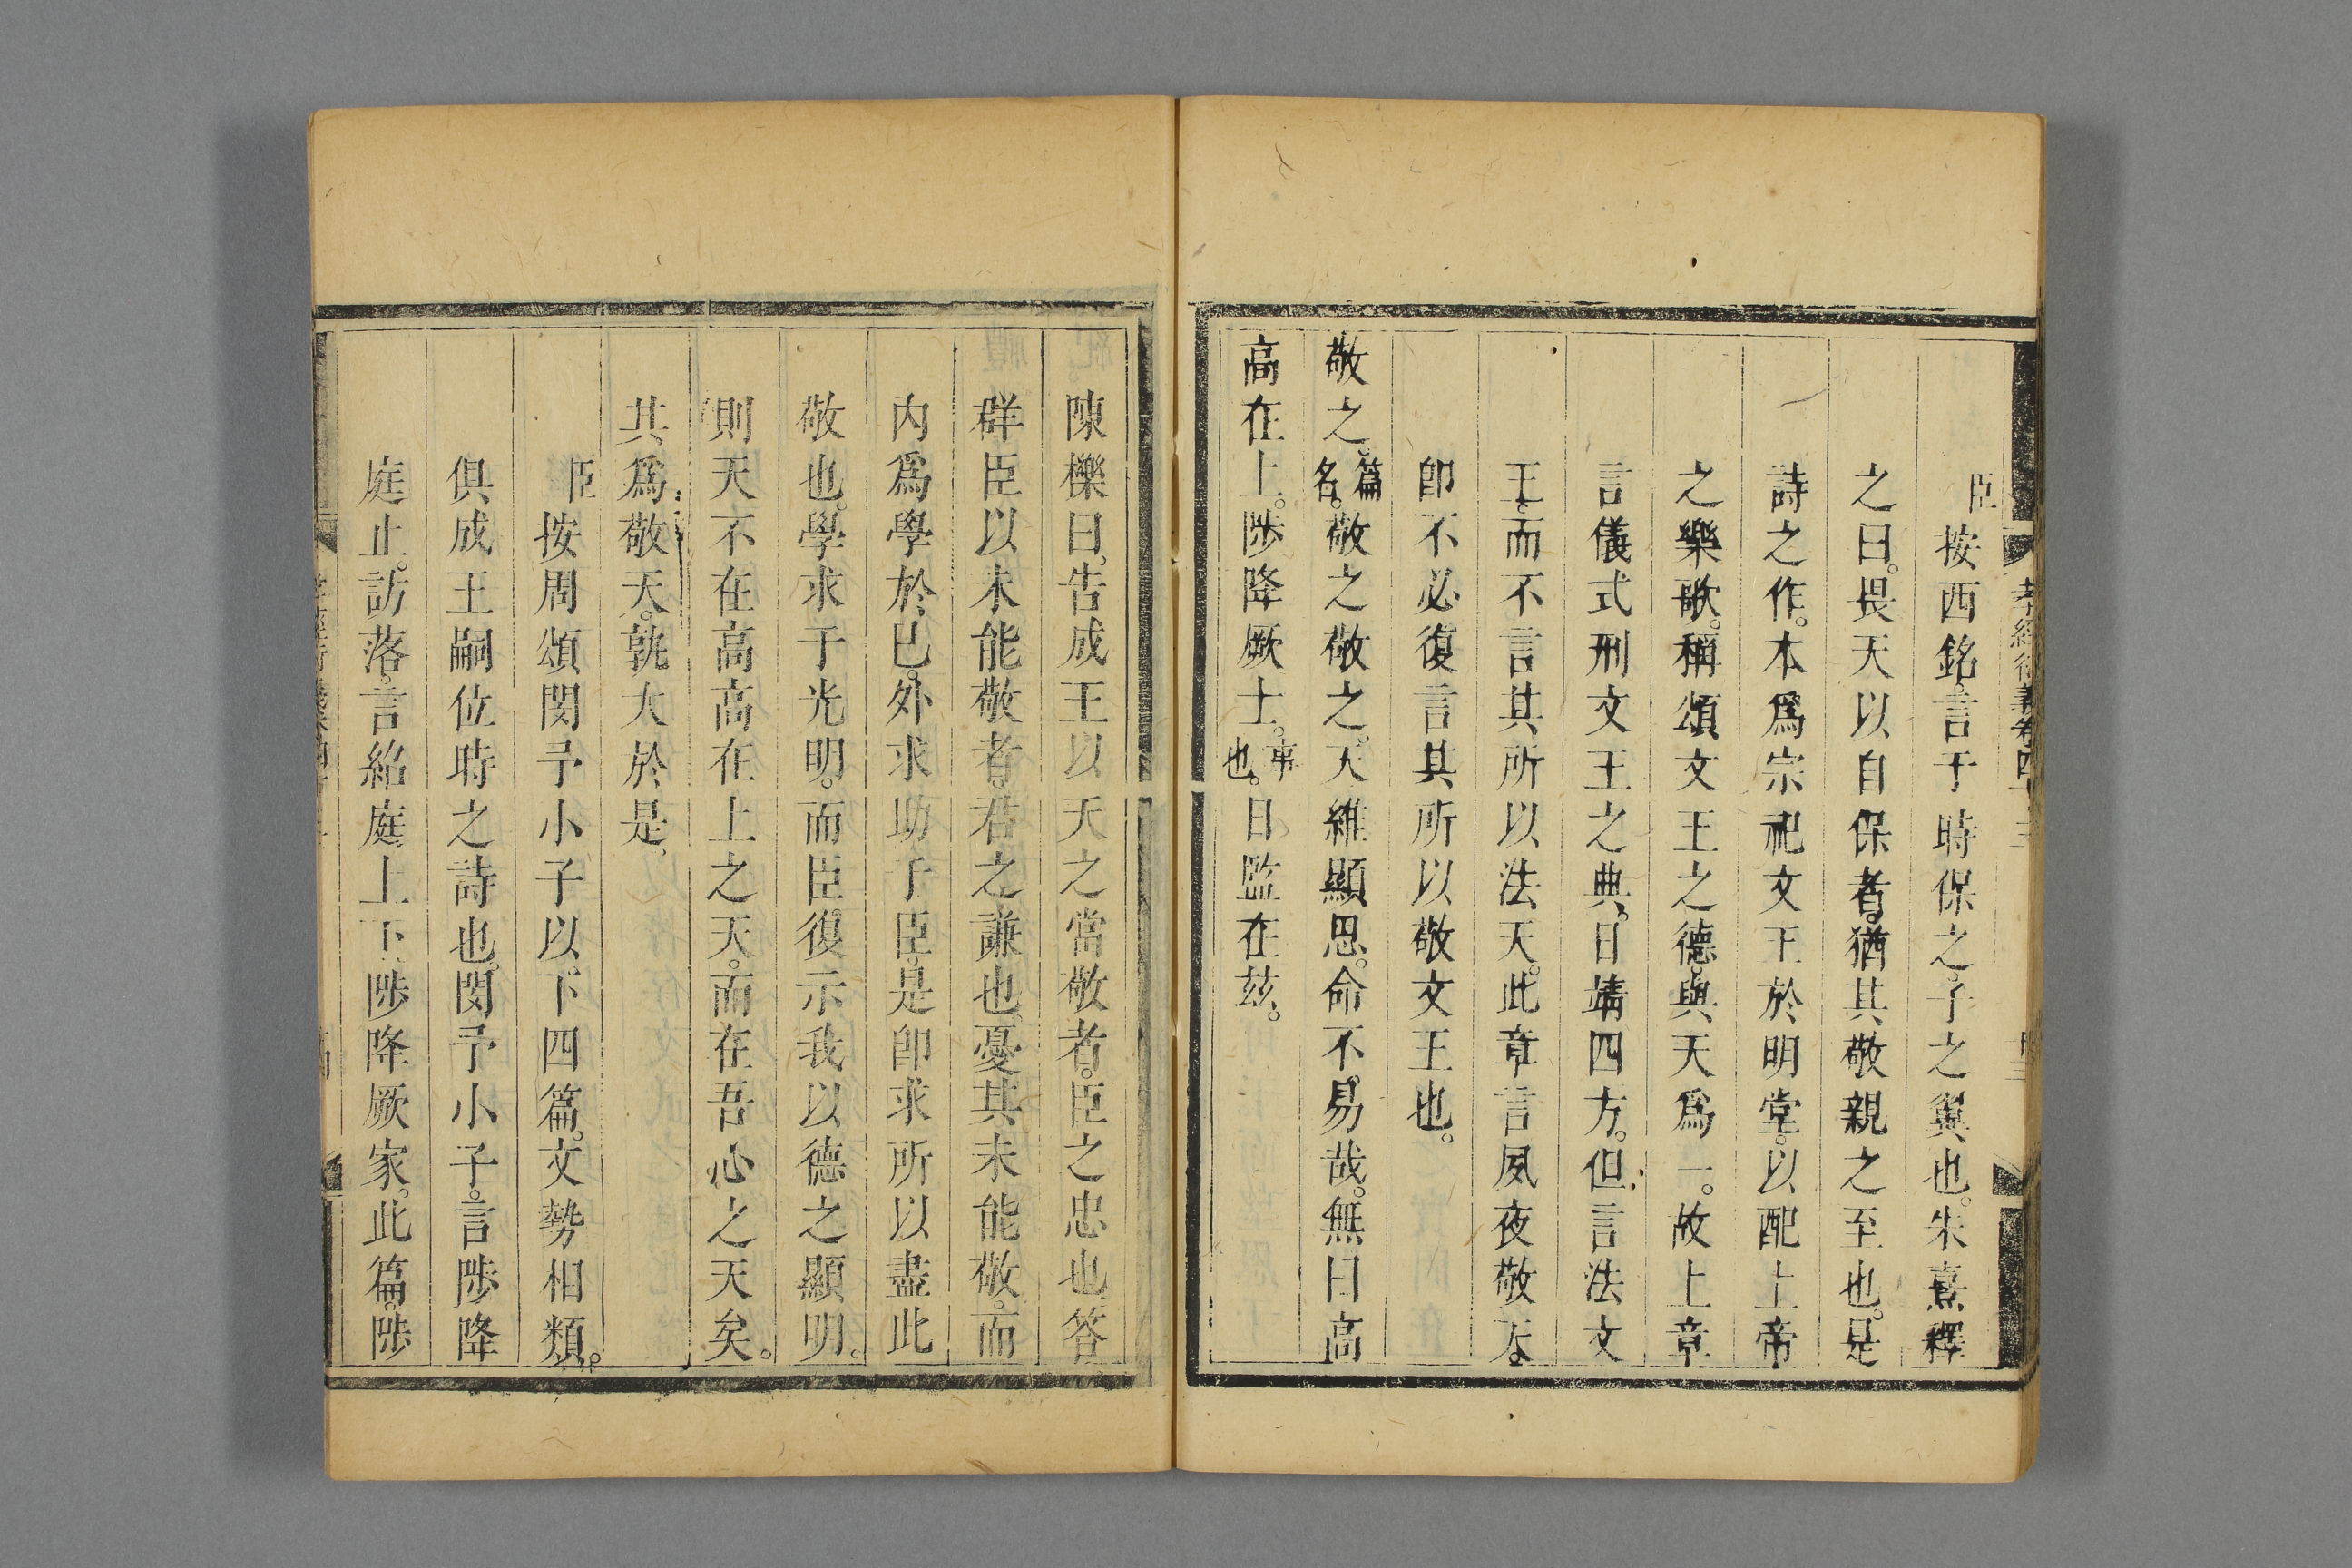 臣按西銘言于時保之子之翼也。朱熹釋
之曰。畏天以自保者。猶其敬親之至也。是
詩之作。本爲宗祀文王於明堂。以配上帝
之樂歌。稱頌文王之德。與天爲一。故上章
言儀式刑文王之典。日靖四方。但言法文
王。而不言其所以法天。此章言夙夜敬天。
卽不必復言其所以敬文王也。
敬之。篇名。敬之敬之。天維顯思。命不易哉。無曰高
高在上。陟降厥士。事也。日監在茲。
陳櫟曰。告成王以天之當敬者。臣之忠也答
群臣以未能敬者。君之謙也。憂其未能敬。而
內爲學於已。外求助于臣。是卽求所以盡此
敬也。學求于光明。而臣復示我以德之顯明。
則天不在高高在上之天。而在吾心之天矣。
共爲敬天。孰大於是。
臣按周頌閔予小子以下四篇。文勢相類。
俱成王嗣位時之詩也。閔予小子。言陟降
庭止。訪落。言紹庭上下陟降厥家。此篇。陟
孝經衍義卷四十三